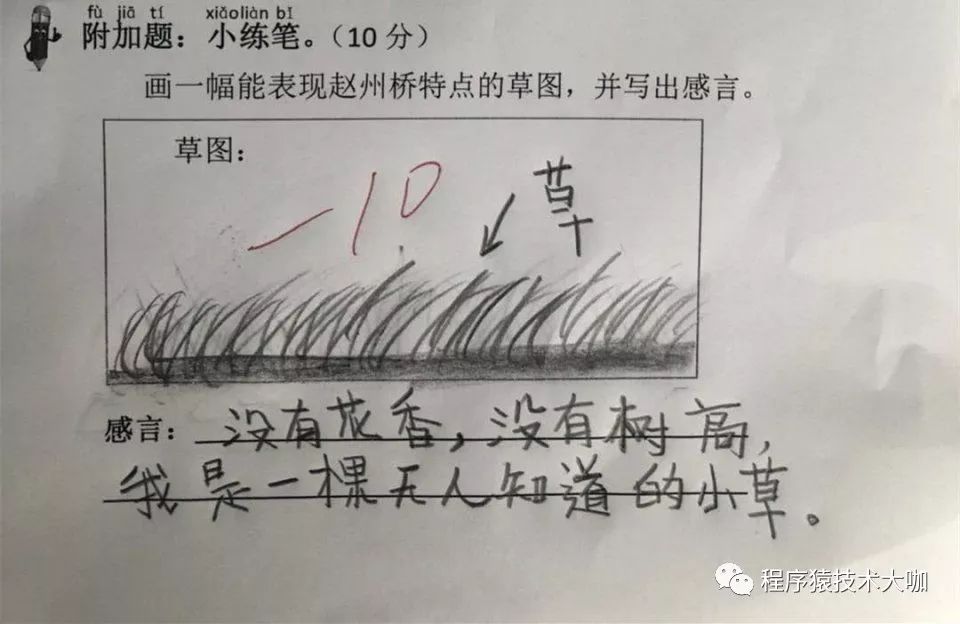 fù jiā tí xiǎoliàn bǐ
附加题：小练笔。（10 分）
画一幅能表现赵州桥特点的草图，并写出感言。
草图：
-10
草
感言：没有花香，没有树高，
我是一棵无人知道的小草。
程序猿技术大咖